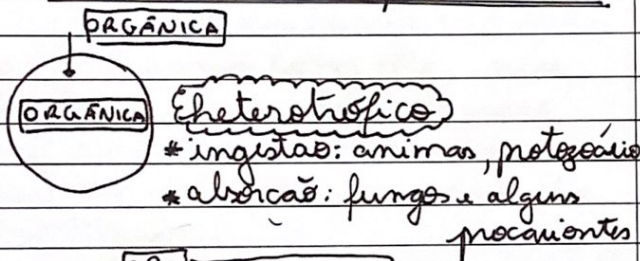 ORGÂNICA
ORGÂNICA
heterotrófico
* ingestão: animas, protozoário
* absorcão: fungos e alguns
procariontes